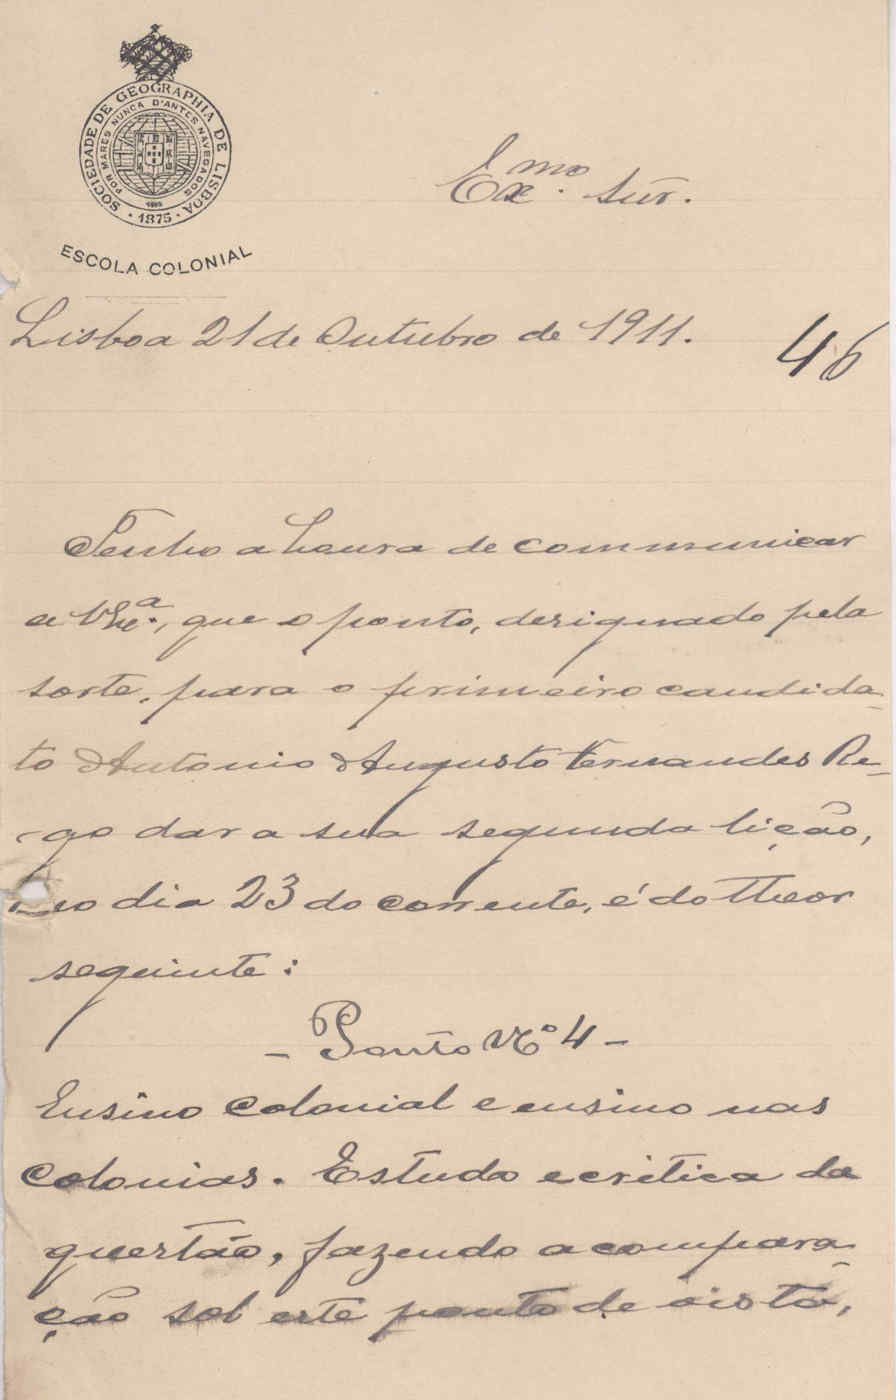 SOCIEDADE DE GEOGRAPHIA DE LISBOA
POR MARES NUNCA D'ANTES NAVEGADOS
· 1875 ·
ESCOLA COLONIAL
Exmo. Snr.
Lisboa 21 de Outubro de 1911.
46
Tenho a honra de communicar
a VExa., que o ponto, designado pela
sorte, para o primeiro candida-
to Antonio Augusto Fernandes Re-
go dar a sua segunda lição,
no dia 23 do corrente, é do theor
seguinte:
- Ponto No 4 -
Ensino colonial e ensino nas
colonias. Estudo e critica da
questão, fazendo a compara-
ção sob este ponto de vista,